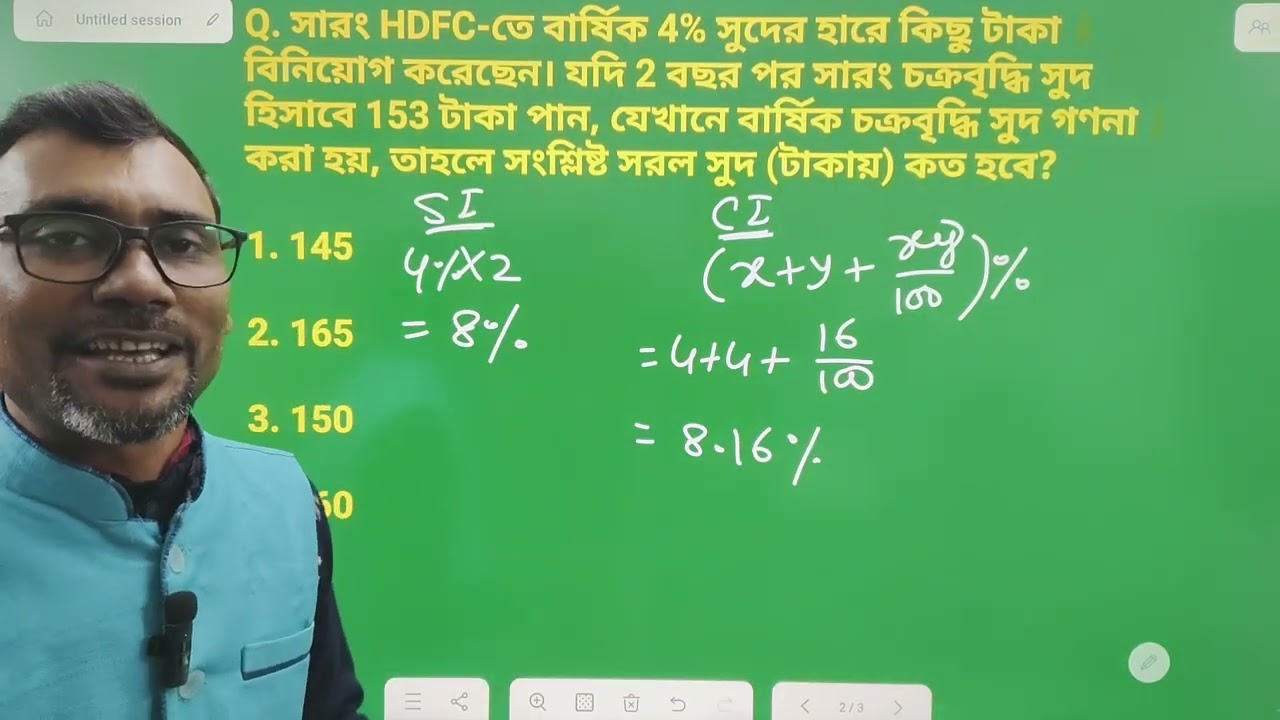 Untitled session
Q. সারং HDFC-তে বার্ষিক 4% সুদের হারে কিছু টাকা
বিনিয়োগ করেছেন। যদি 2 বছর পর সারং চক্রবৃদ্ধি সুদ
হিসাবে 153 টাকা পান, যেখানে বার্ষিক চক্রবৃদ্ধি সুদ গণনা
করা হয়, তাহলে সংশ্লিষ্ট সরল সুদ (টাকায়) কত হবে?
1. 145
2. 165
3. 150
60
SI
4%×2
= 8%
CI
(x+y+xy/100)%
=4+4+16/100
= 8.16%
2/3